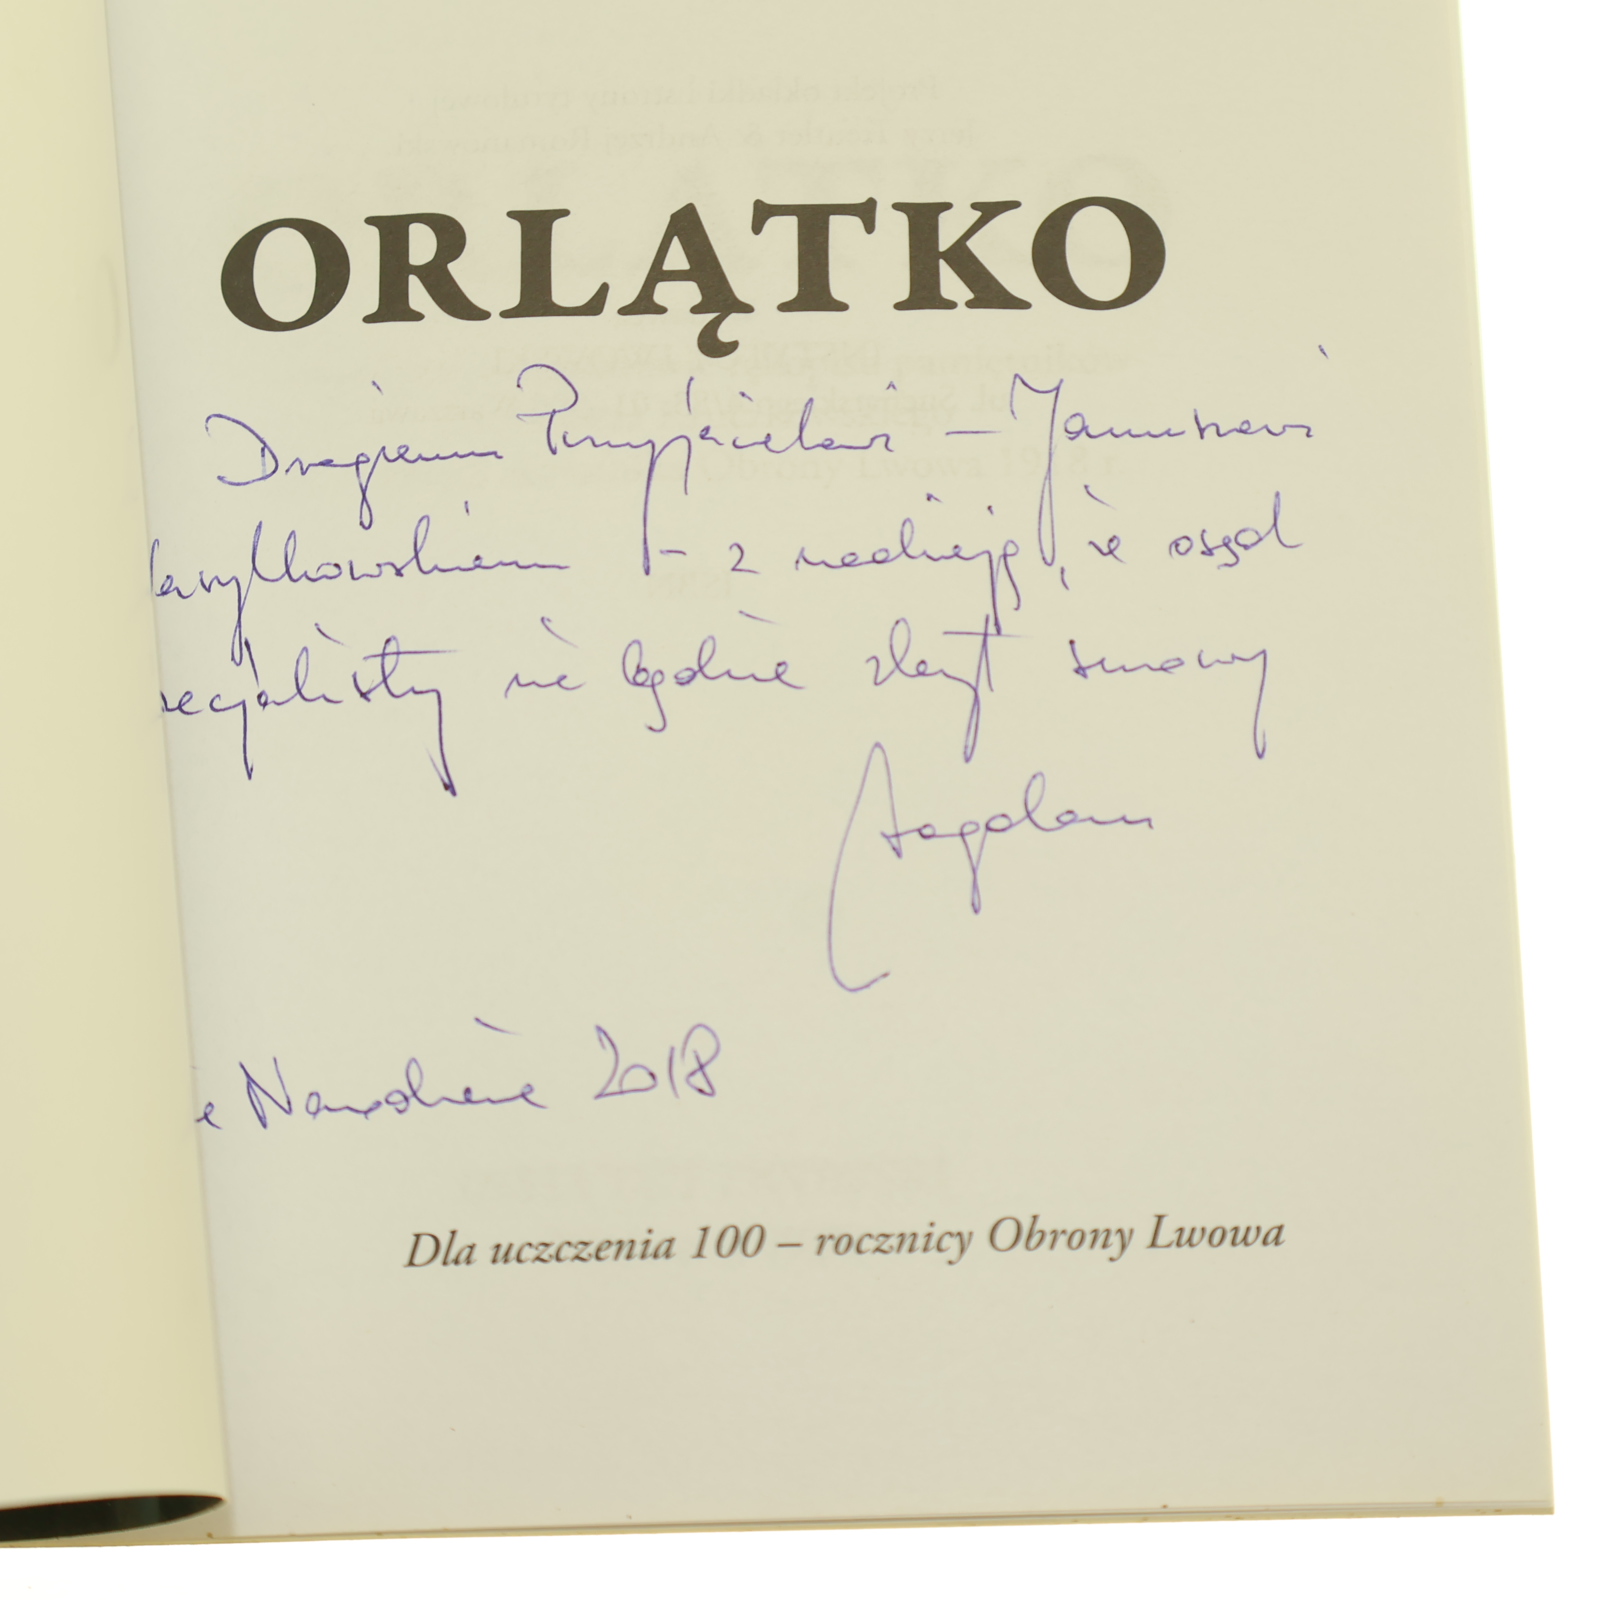 ORLĄTKO
Drogiemu Przyjacielowi – Januszowi
asylkowskiemu – z nadzieją, że osąd
ecjalisty nie będzie zbyt surowy
Bogdan
e Narodzenie 2018
Dla uczczenia 100 – rocznicy Obrony Lwowa